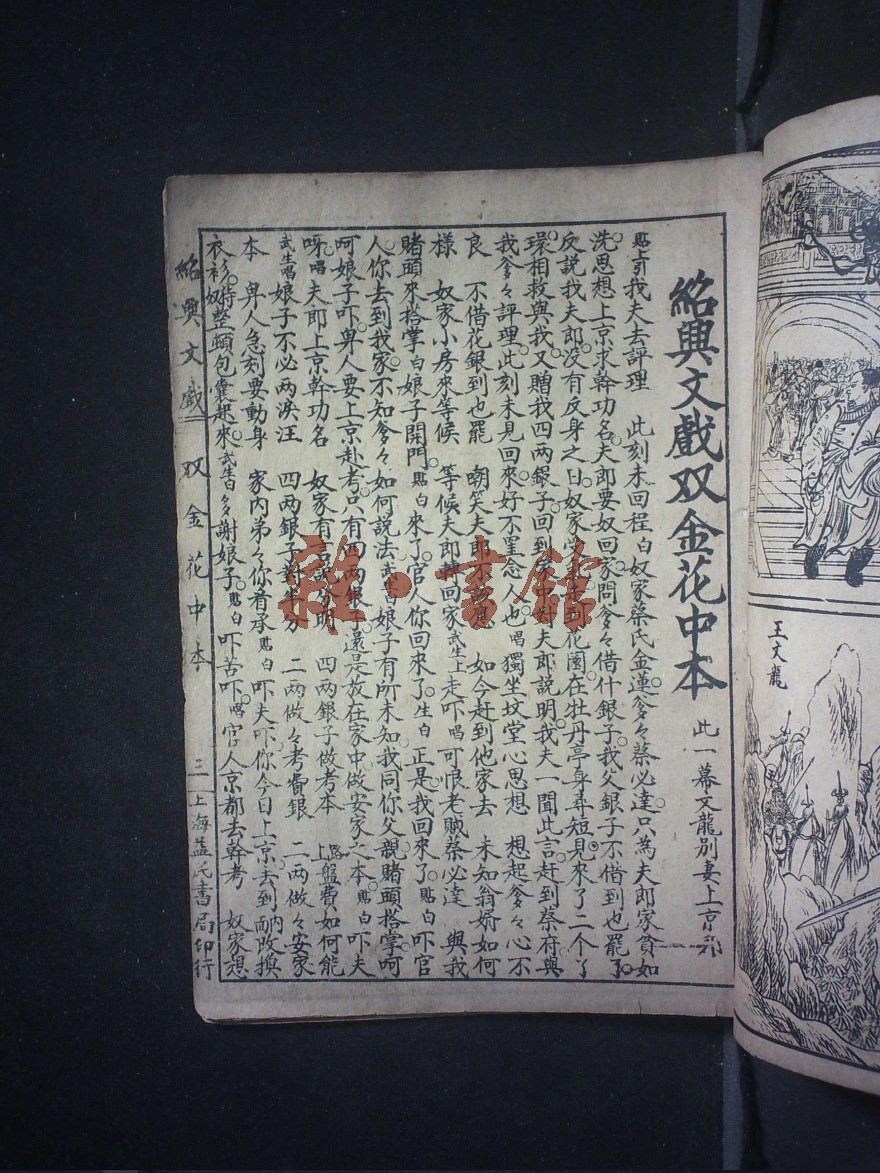 紹興文戲双金花中本
此一幕文龍別妻上京
貼上引我夫去評理 此刻未回程白奴家蔡氏金蓮爹々蔡必達只為夫郎家貧如
洗思想上京求幹功名夫郎要奴回家問爹々借什銀子我父銀子不借到也罷了
反說我夫郎没有反身之日奴家 花園在牡丹亭身尋短見來了二个了
環相救與我又贈我四两銀子回到 夫郎説明我夫一聞此言赶到蔡府與
我爹々評理此刻未見回來好不罣念人也唱獨坐坟堂心思想 想起爹々心不
良 不借花銀到也罷 嘲笑夫郎不 如今赶到他家去 未知翁婿如何
樣 奴家小房來等候 等候夫郎轉回家武生上走吓唱可恨老賊蔡必達 與我
賭頭來搭掌白娘子開門貼白來了官人你回來了生白正是我回來了貼白吓官
人你去到我家不知爹々如何說法武生白娘子有所未知我同你父親賭頭搭掌呵
呵娘子吓卑人要上京赴考只有四两銀子還是放在家中做安家之本貼白吓夫
呀唱夫郎上京幹功名 奴家有言 明 四两銀子做考本 上路盤費如何能
武生唱娘子不必两淚汪 四两銀子 分 二两做々考費銀 二两做々安家
本 卑人急刻要動身 家內弟々你看承貼白吓夫吓你今日上京去到 改換
衣衫奴待整頓包囊起來武生白多謝娘子貼白吓苦吓唱官人京都去幹考 奴家想
紹興文戲 双金花中本 三 上海益民書局印行
王文龍
雞·書館